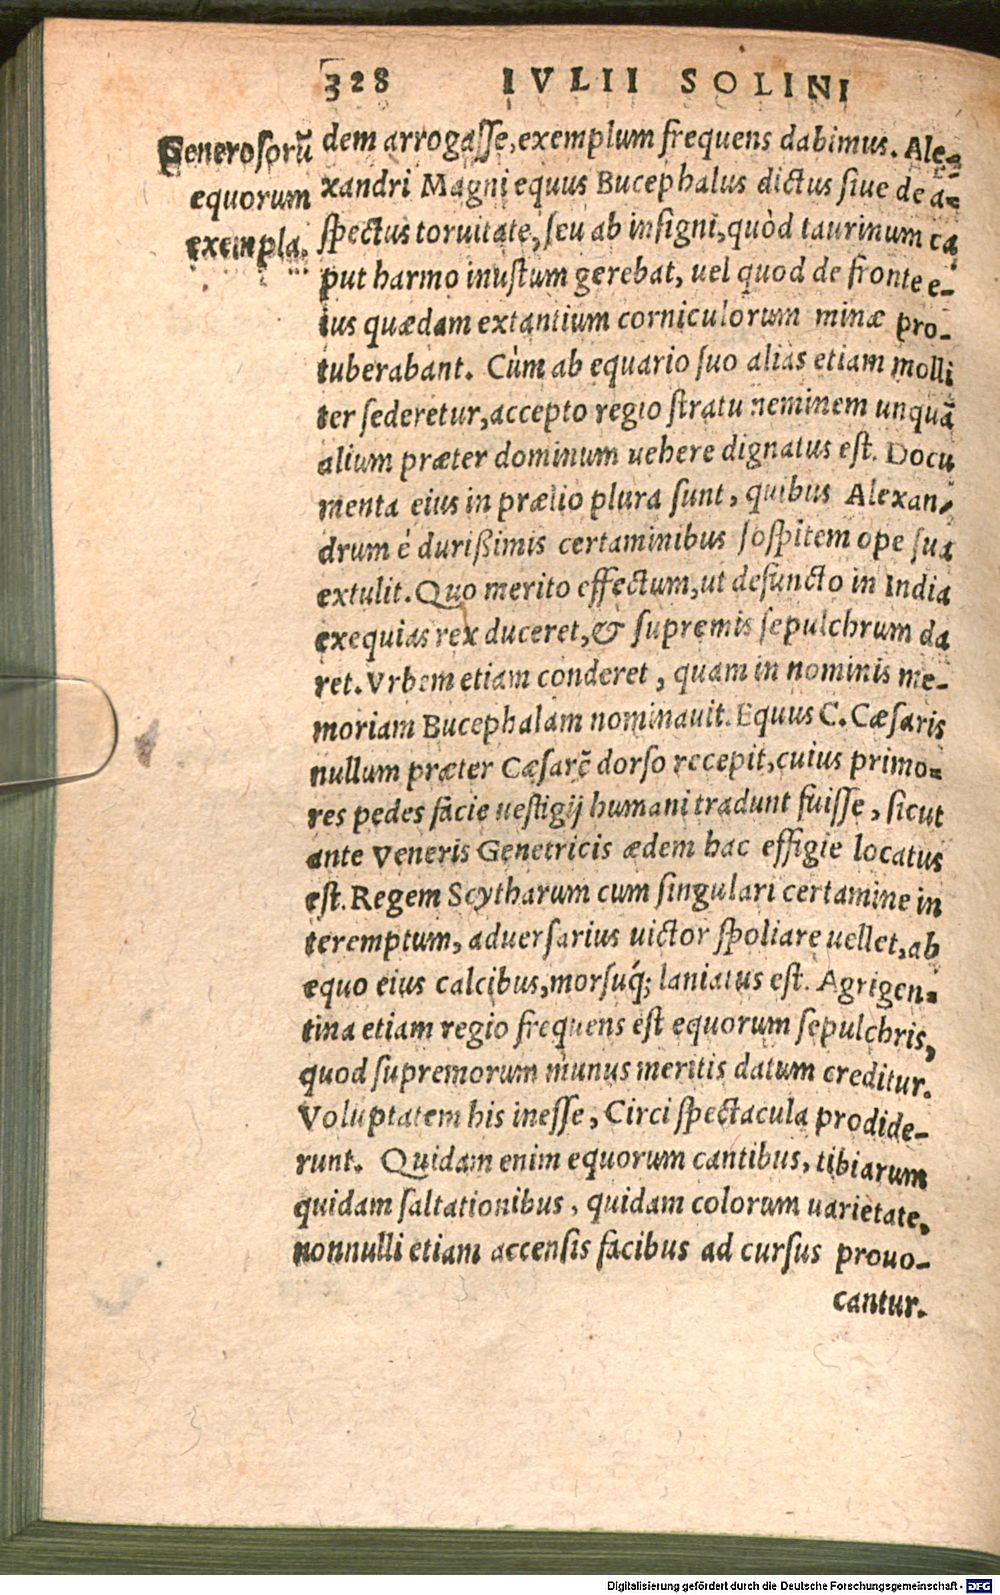 328 IVLII SOLINI
Generosorū
equorum
exempla.
dem arrogasse, exemplum frequens dabimus. Ale-
xandri Magni equus Bucephalus dictus siue de a-
spectus toruitate, seu ab insigni, quòd taurinum ca
put harmo inustum gerebat, uel quod de fronte e-
ius quædam extantium corniculorum minæ pro-
tuberabant. Cùm ab equario suo alias etiam molli
ter sederetur, accepto regio stratu neminem unquā
alium præter dominum uehere dignatus est. Docu
menta eius in prælio plura sunt, quibus Alexan-
drum è durißimis certaminibus sospitem ope sua
extulit. Quo merito effectum, ut defuncto in India
exequias rex duceret, & supremis sepulchrum da
ret. Vrbem etiam conderet, quam in nominis me-
moriam Bucephalam nominauit. Equus C. Cæsaris
nullum præter Cæsarē dorso recepit, cuius primo-
res pedes facie uestigij humani tradunt fuisse, sicut
ante Veneris Genetricis ædem hac effigie locatus
est. Regem Scytharum cum singulari certamine in
teremptum, aduersarius uictor spoliare uellet, ab
equo eius calcibus, morsuq́; laniatus est. Agrigen-
tina etiam regio frequens est equorum sepulchris,
quod supremorum munus meritis datum creditur.
Voluptatem his inesse, Circi spectacula prodide-
runt. Quidam enim equorum cantibus, tibiarum
quidam saltationibus, quidam colorum uarietate,
nonnulli etiam accensis facibus ad cursus prouo-
cantur.
Digitalisierung gefördert durch die Deutsche Forschungsgemeinschaft - DFG